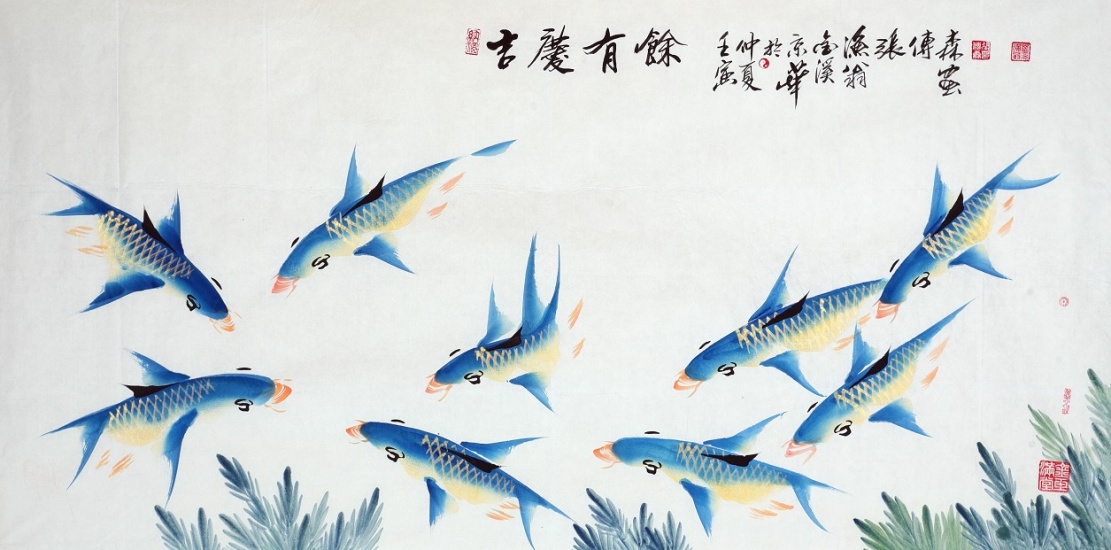 吉慶有餘
壬寅
仲夏
於
京華
金溪
漁翁
張
傳
森畫
金玉滿堂